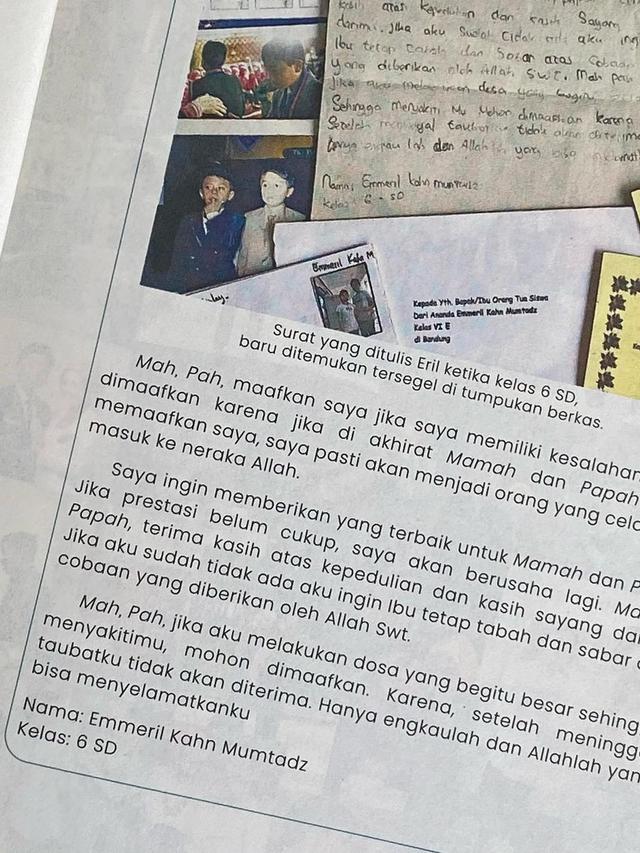 kasih atas kepedulian dan kasih Sayang
darimu. Jika aku Sudah tidak ada aku ingin
Ibu tetap tabah dan Sabar atas Cobaan
yang diberikan oleh Allah SWT. Mah pah
Jika aku melakukan dosa yang begitu
Sehingga menyakiti Mu Mohon dimaafkan karena
Setelah meninggal taubatku tidak akan diterima
hanya engkau lah dan Allah lah yang bisa
Nama: Emmeril kahn mumtadz
kelas: 6 - SD
Emmeril Kahn M
Kepada Yth. Bapak/Ibu Orang Tua Siswa
Dari Ananda Emmeril Kahn Mumtadz
Kelas VI E
di Bandung
Surat yang ditulis Eril ketika kelas 6 SD,
baru ditemukan tersegel di tumpukan berkas.
Mah, Pah, maafkan saya jika saya memiliki kesalahan
dimaafkan karena jika di akhirat Mamah dan Papah
memaafkan saya, saya pasti akan menjadi orang yang cela
masuk ke neraka Allah.
Saya ingin memberikan yang terbaik untuk Mamah dan P
Jika prestasi belum cukup, saya akan berusaha lagi. Ma
Papah, terima kasih atas kepedulian dan kasih sayang da
Jika aku sudah tidak ada aku ingin Ibu tetap tabah dan sabar
cobaan yang diberikan oleh Allah Swt.
Mah, Pah, jika aku melakukan dosa yang begitu besar sehing
menyakitimu, mohon dimaafkan. Karena, setelah meningg
taubatku tidak akan diterima. Hanya engkaulah dan Allahlah yan
bisa menyelamatkanku
Nama: Emmeril Kahn Mumtadz
Kelas: 6 SD